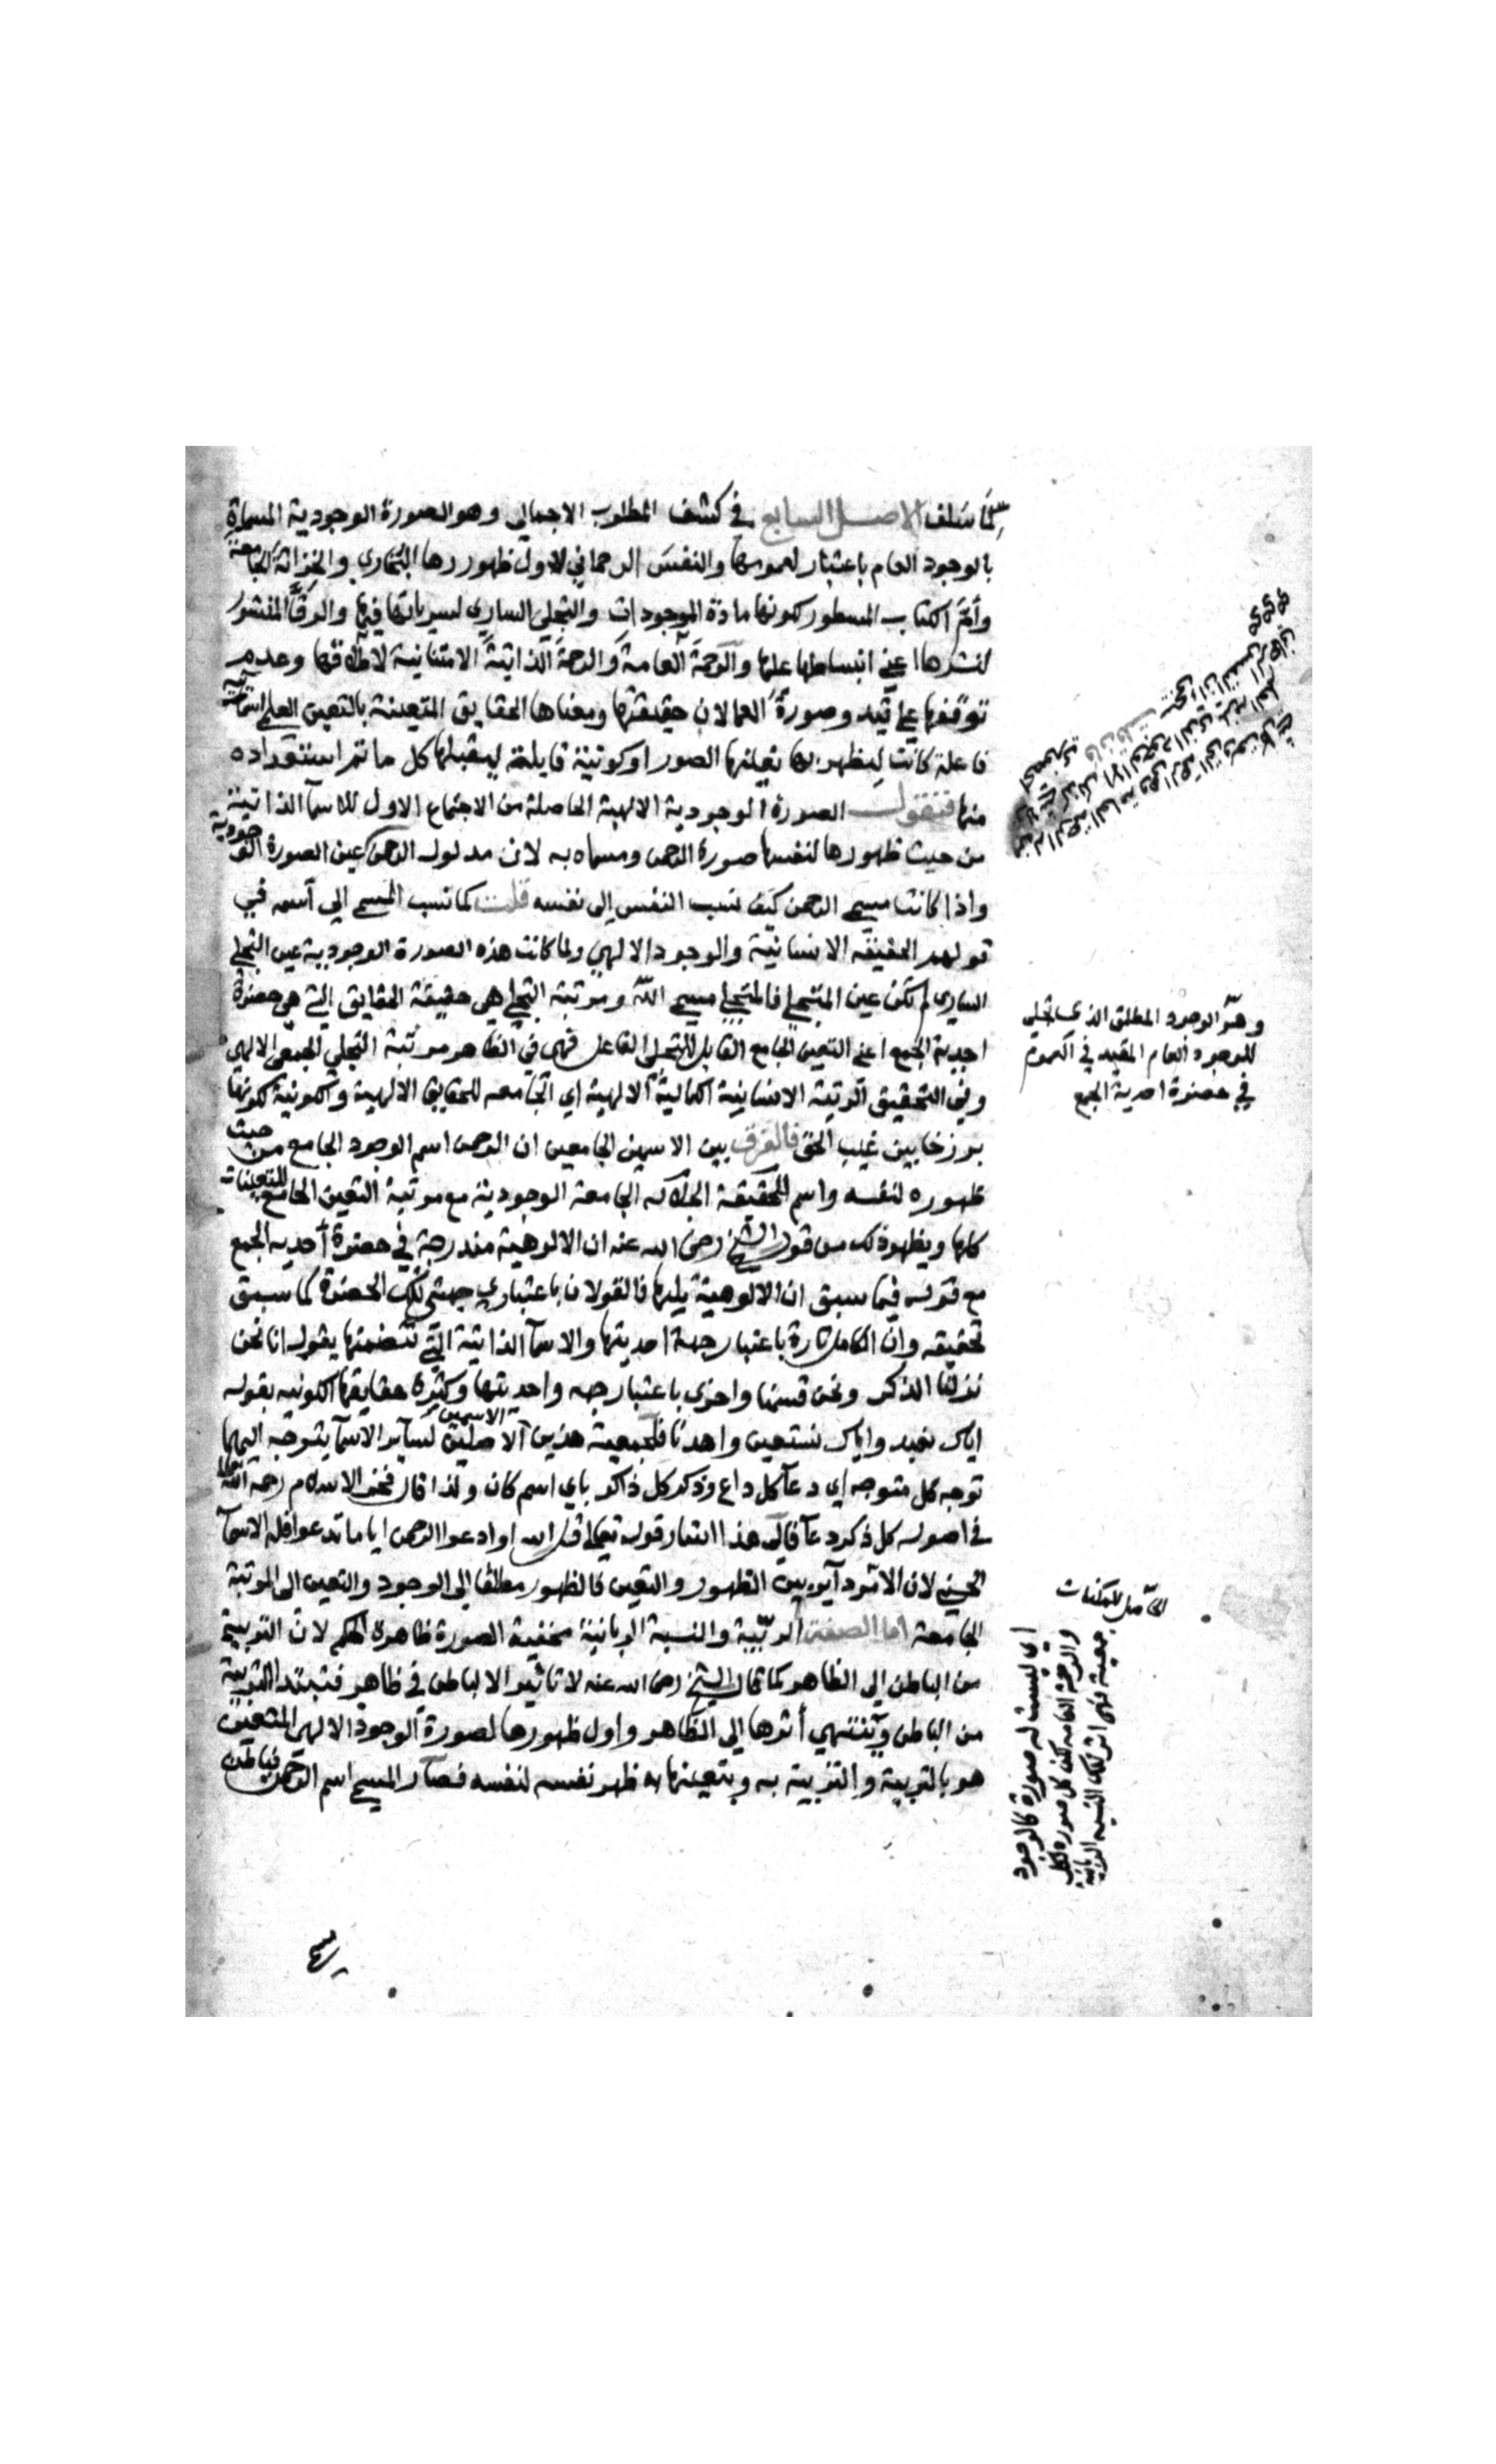 كما سلف الاصل السابع في كشف المطلوب الاجمالي وهو الصورة الوجودية المسماة
بالوجود العام باعتبار لعمومها والنفس الرحماني لاول ظهورها البخاري والخزانة الجامعة
وأم الكتاب المسطور لكونها مادة الموجودات والتجلي الساري لسريانها فيها والرق المنشور
لنشرها اعني انبساطها عليها والرحمة العامة والرحمة الذاتية الامتنانية لاطلاقها وعدم
توقفها علي قيد وصورة العما لان حقيقتها ومعناها الحقايق المتعينة بالتعين العلمي
فاعلة كانت ليظهر بها تعلنها الصور او كونية قابلية ليقبلها كل ما تم استعداده
منها فنقول الصورة الوجودية الالهية الحاصلة من الاجتماع الاول للاسما الذاتية
من حيث ظهورها لنفسها صورة الرحمن ومسماه به لان مدلول الرحمن عين الصورة الوجودية
واذا كانت مسمي الرحمن كيف نسب النفس الى نفسه قلت كما نسب المسمي الي اسمه في
قولهم الحقيقه الانسانية والوجود الالهي ولما كانت هذه الصورة الوجودية عين التجلي
الساري لم تكن عين المتجلي فالمتجلي مسمي الله ومرتبة التجلي هي حقيقة الحقايق التي هي حضرة
احدية الجمع اعني التعين الجامع القابل للتجلي الفاعل فهي في الظاهر مرتبة التجلي الجمعي الالهي
وفي التحقيق الرتبة الانسانية الكمالية الالهية اي الجامعه للحقايق الالهية والكونية لكونها
برزخا بين غيب الحق فالفرق بين الاسمين الجامعين ان الرحمن اسم الوجود الجامع من حيث
ظهوره لنفسه واسم للحقيقة الجلاله الجامعة الوجودية مع مرتبة التعين الجامع للتعينات
كلها ويظهر ذلك من قول الشيخ رضى الله عنه ان الالوهية مندرجة في حضرة أحديه الجمع
مع قوله فيما سبق ان الالوهية يليها فالقولان باعتباري جهتي تلك الحضرة كما سبق
تحقيقه وان الكامل تارة باعتبار جهة احديتها والاسما الذاتية التي تتضمنها يقول انا نحن
نزلنا الذكر ونحن قسمنا واخرى باعتبار جهه واحديتها وكثرة حقايقها الكونيه بقوله
اياك نعبد واياك نستعين واهدنا فلجمعية هذين الاسمين الاصلين لساير الاسما يتوجه اليهما
توجه كل متوجه اي دعا كل داع وذكر كل ذاكر باي اسم كان ولذا قال فخر الاسلام رحمه الله تعالى
في اصوله كل ذكر دعا فالى هذا اشار قوله تعالى قل ادعوا الله او ادعوا الرحمن ايا ما تدعوا فله الاسما
الحسنى لان الامر دآير بين الظهور والتعين فالظهور مطلقا إلى الوجود والتعين الى المرتبة
الجامعة اما الصفة الربية والنسبة الربانية مخفية الصورة ظاهرة الحكم لان التربية
من الباطن إلى الظاهر كما قال الشيخ رضى الله عنه لا تاثير الا لباطن في ظاهر فتبتدا التربية
من الباطن وتنتهي أثرها إلى الظاهر واول ظهورها لصورة الوجود الالهي المتعين
هو بالتربية والتربية به وبتعينها به ظهر نفسه لنفسه فصار المسمي اسم الرحمن فباطن
وهو الوجود المطلق الذي تجلى
للوجود العام المقيد في العموم
في حضرة احدية الجمع
الحاصل للممكنات
اي ليست له صورة كالوجود
والرحمة العامه لكن كل صورة لكل
جمعية فهى اثر تلك النسبه الربانية